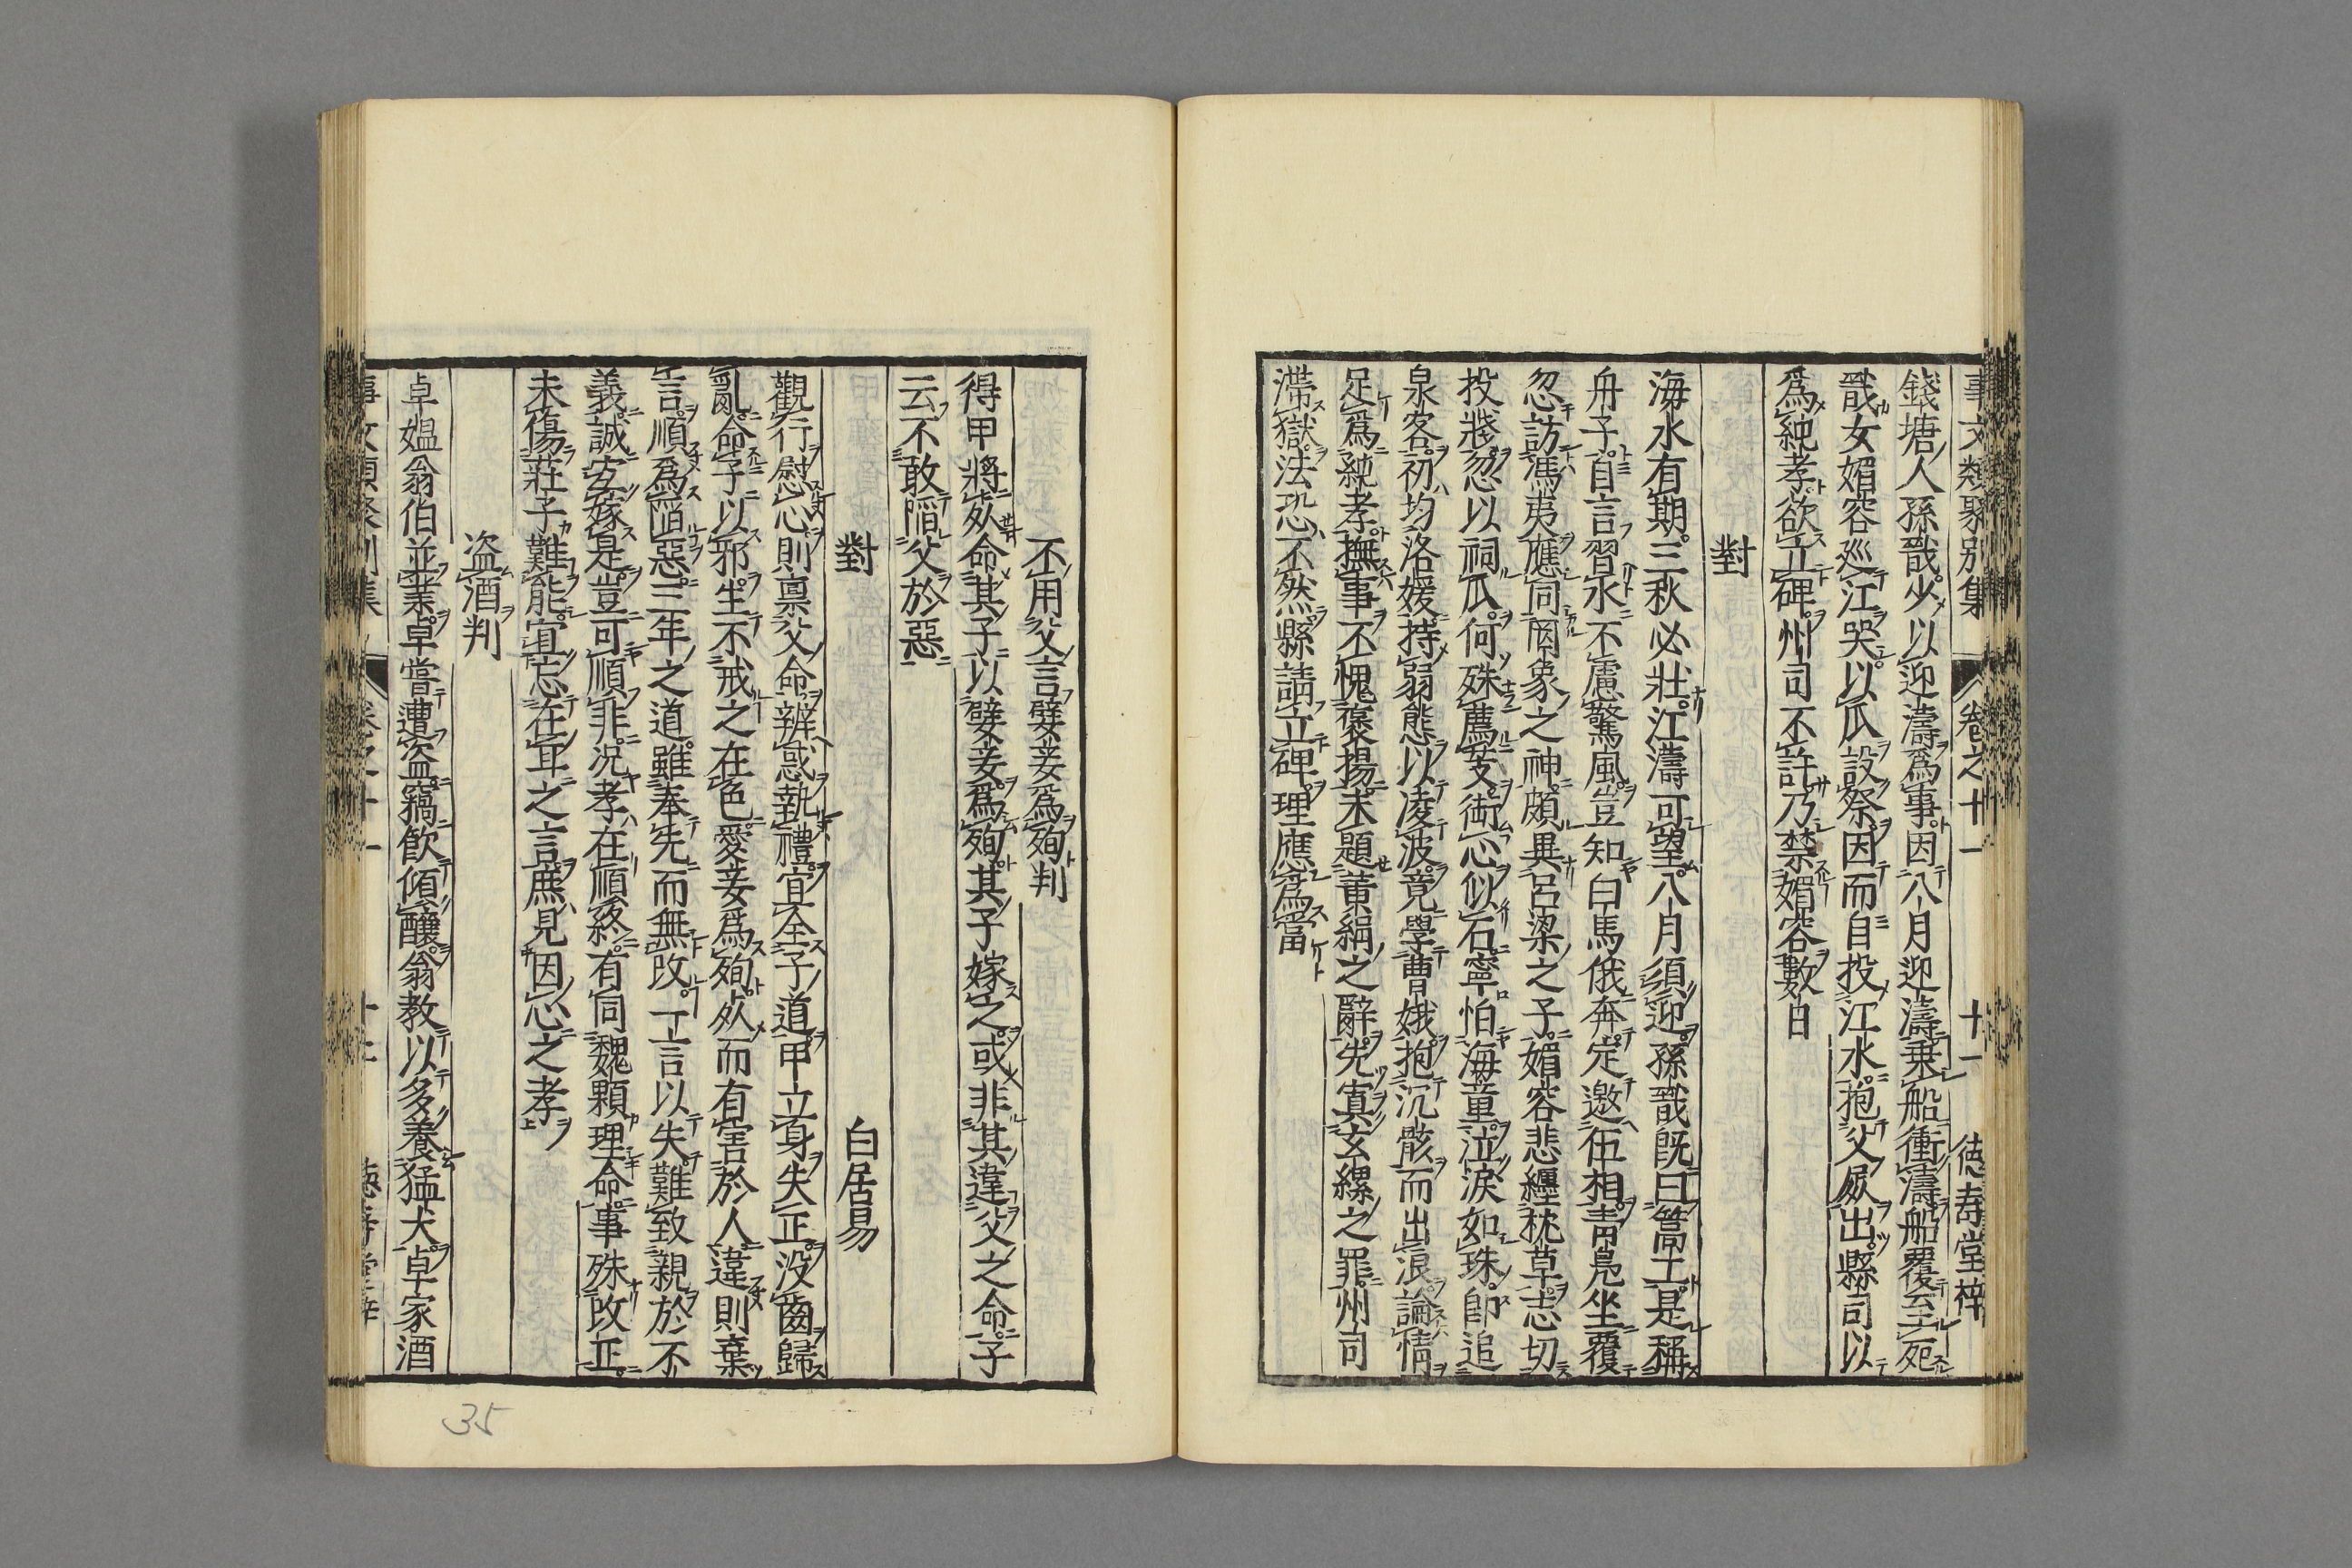 事文類聚別集 卷之十一 十一 徳寿堂梓
錢塘人孫戩少以迎濤爲事因八月迎濤乗船衝濤船覆至死
戩女媚容巡江哭以瓜設祭因而自投江水抱父屍出縣司以
爲純孝欲立碑州司不許乃禁媚容數日
對
海水有期三秋必壯江濤可望八月須迎孫戩既曰篙工是稱
舟子自言習水不慮驚風豈知白馬俄奔定邀伍相青鳧坐覆
忽訪馮夷應同罔象之神頗異呂梁之子媚容悲纏枕草志切
投牋忽以祠瓜何殊薦芰銜心似石寧怕海童泣淚如珠即追
泉客初均洛媛持弱態以凌波竟學曹娥抱沉骸而出浪論情
足爲純孝撫事不愧褒揚未題黄絹之辭先寘玄縲之罪州司
滯獄法恐不然縣請立碑理應爲當
不用父言嬖妾爲殉判
得甲將死命其子以嬖妾爲殉其子嫁之或非其違父之命子
云不敢陷父於惡
對 白居易
觀行慰心則禀父命辨惑執禮宜全子道甲立身失正没齒歸
亂命子以邪生不戒之在色愛妾爲殉死而有害於人違則棄
言順爲陥惡三年之道雖奉先而無改一言以失難致親於不
義誠宜嫁是豈可順非况孝在順終有同魏顆理命事殊改正
未傷莊子難能宜忘在耳之言庶見因心之孝
盗酒判
卓媪翁伯並業卓嘗遭盗竊飲傾釀翁教以多養猛犬卓家酒
35